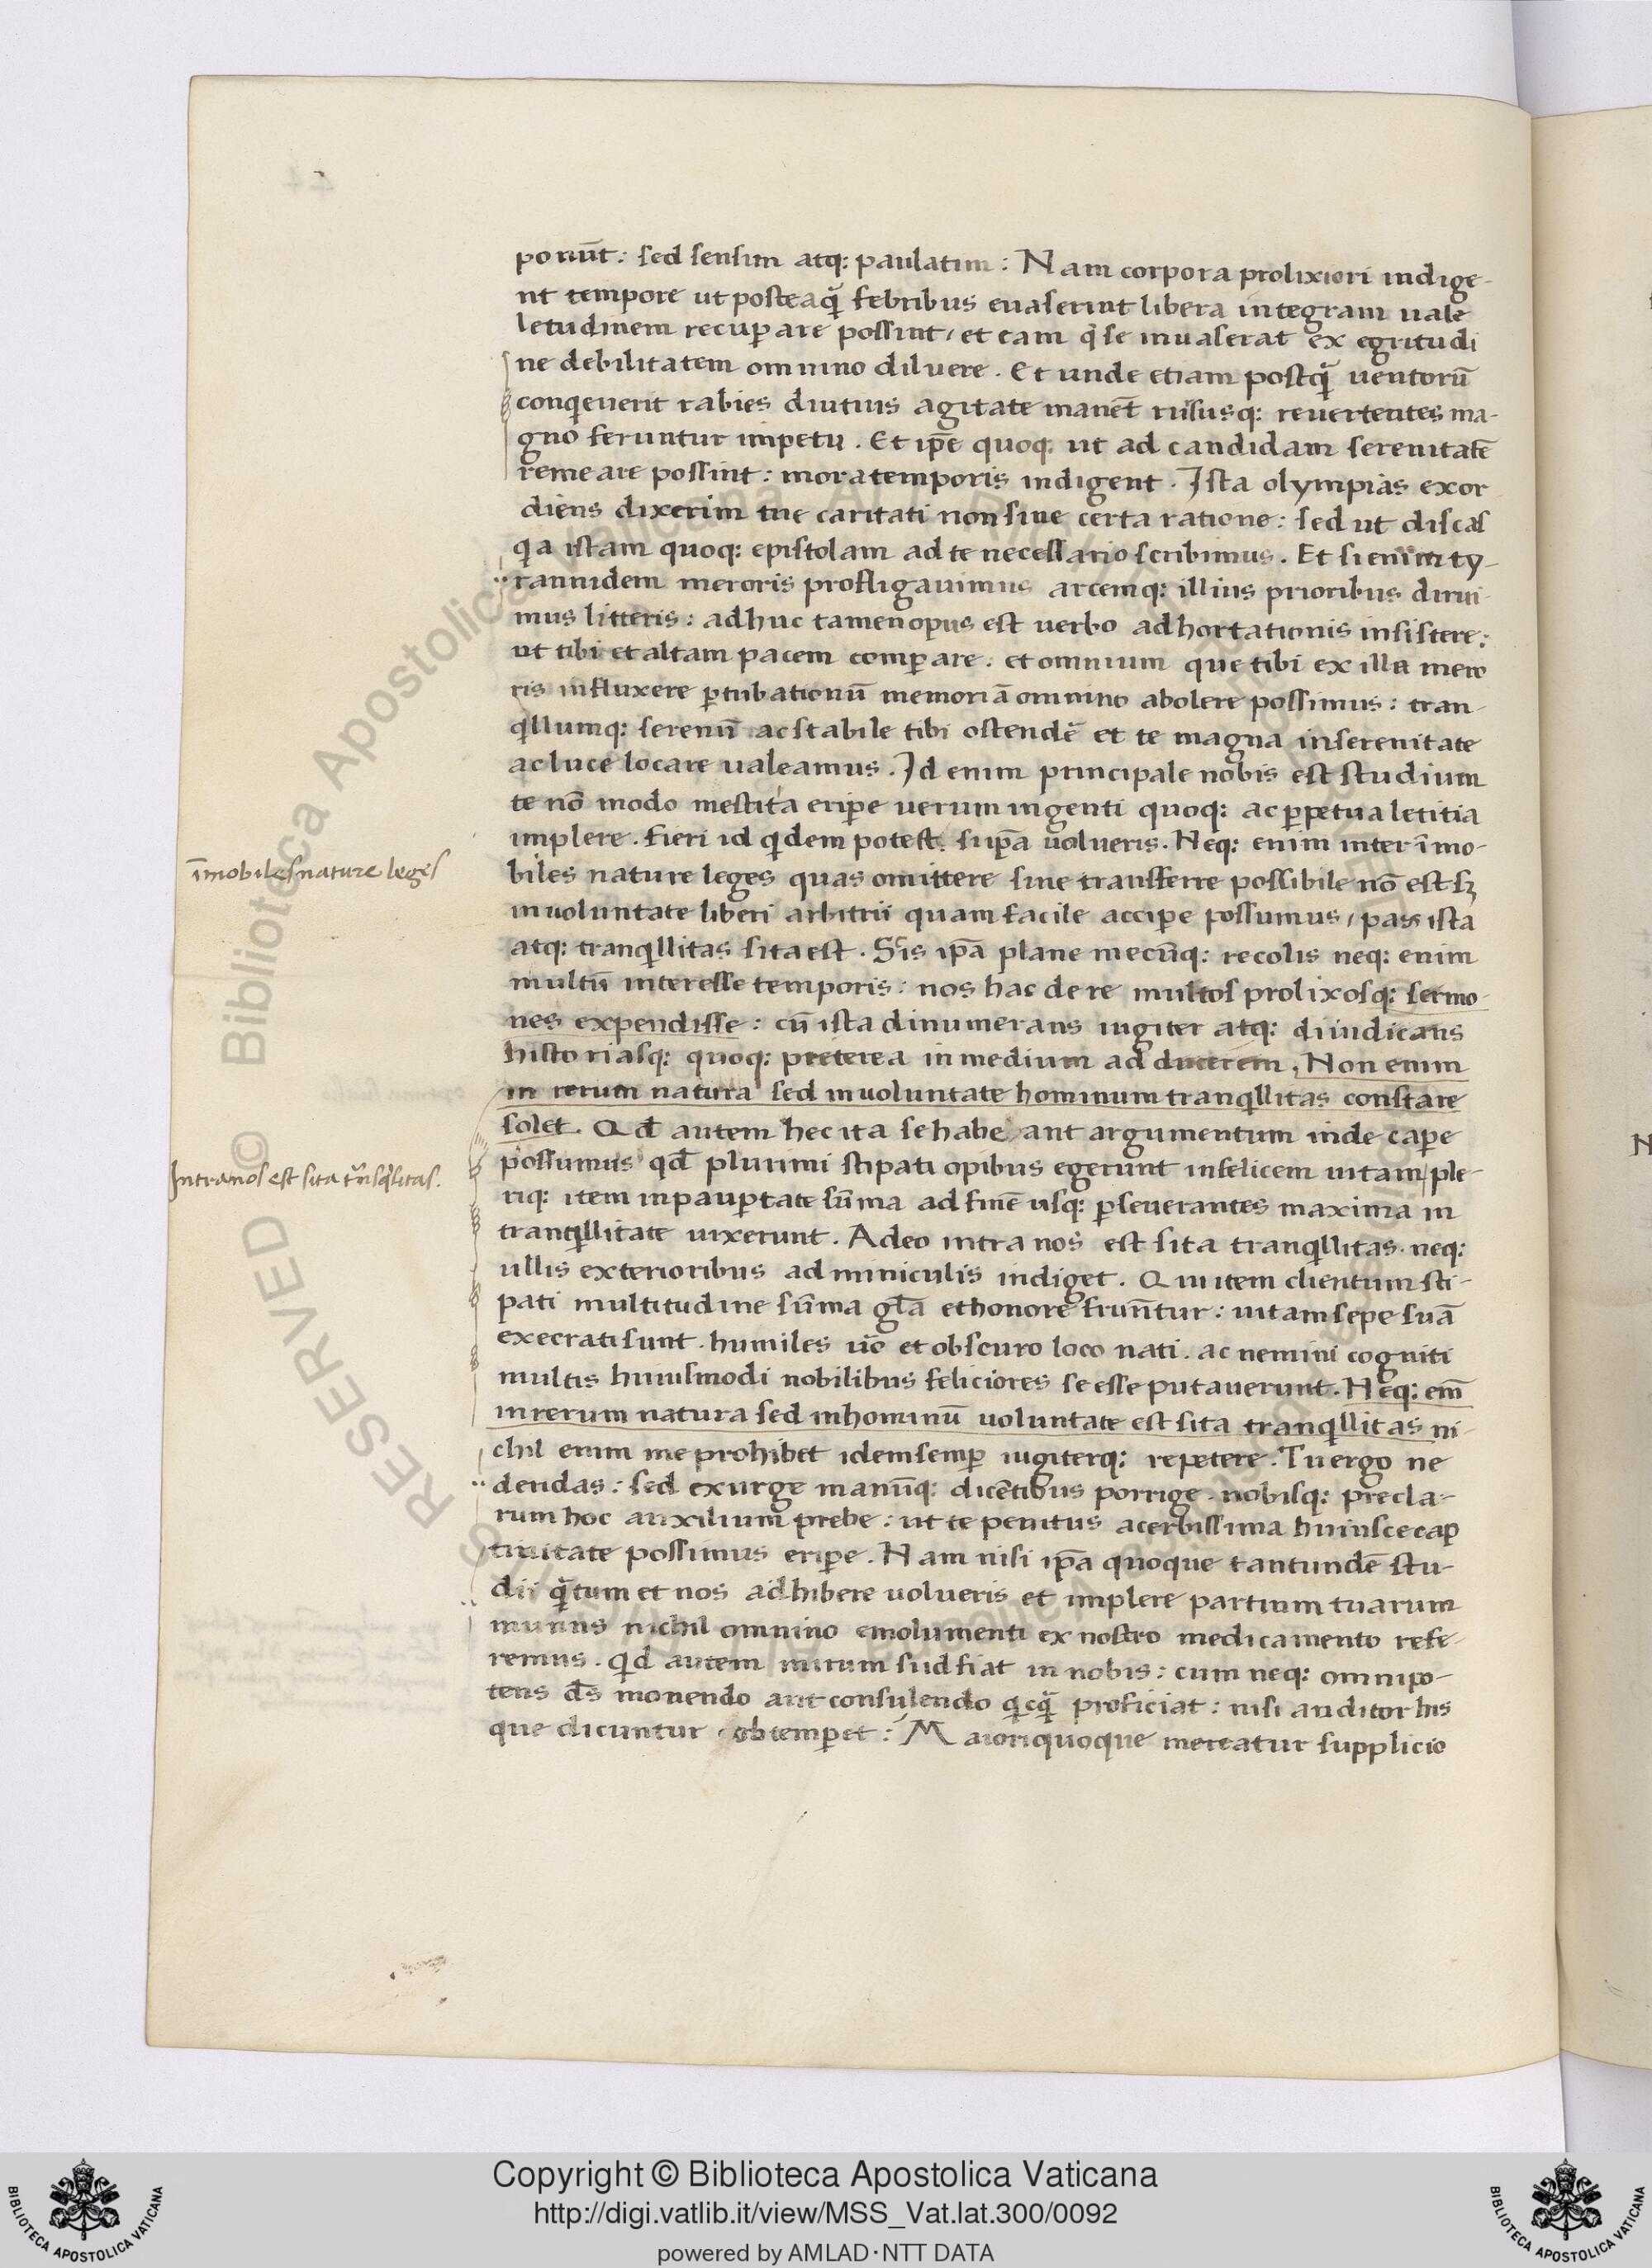 ponūt: sed sensim atq: paulatim: Nam corpora prolixiori indige-
nt tempore ut posteaq̃ febribus euaserint libera integram uale
letudinem recuꝑare possint, et eam q̄ se inuaserat ex egritudi
ne debilitatem omnino diluere. Et unde etiam postq̃ uentorū
conq̇euerit rabies diutius agitate manēt rursusq: reuertentes ma-
gno feruntur impetu. Et ip̄e quoq: ut ad candidam serenitatē
remeare possint: mora temporis indigent. Ista olympias exor
diens dixerim tue caritati non sine certa ratione: sed ut discas
q̇a istam quoq: epistolam ad te necessario scribimus. Et si enim ty-
rannidem meroris profligauimus arcemq: illius prioribus dirui-
mus litteris: adhuc tamen opus est uerbo adhortationis insistere:
ut tibi et altam pacem comꝑare. et omnium que tibi ex illa mero
ris influxere ꝑturbationū memoriā omnino abolere possimus: tran-
q̇llumq: serenū ac stabile tibi ostendē et te magna in serenitate
ac luce locare ualeamus. Id enim principale nobis est studium
te nō modo mestitia eriꝑe uerum ingenti quoq: ac ꝑpetua letitia
implere. fieri id q̇dem potest. si ip̄a uolueris. Neq: enim inter īmo-
īmobiles nature leges
biles nature leges quas omittere siue transferre possibile nō est sꝫ
in uoluntate liberi arbitrii quam facile acciꝑe possumus, pax ista
atq: tranq̇llitas sita est. Scis ip̄a plane mecūq: recolis neq: enim
multū interesse temporis: nos hac de re multos prolixosq: sermo-
nes expendisse: cū ista dinumerans iugiter atq: diiudicans
historiasq: quoq: preterea in medium adducerem. Non enim
in rerum natura sed in uoluntate hominum tranq̇llitas constare
solet. Qd̄ autem hec ita se habeant argumentum inde caꝑe
possumus qd̄ plurimi stipati opibus egerunt infelicem uitam, ple-
Intra nos est sita trāsq̇litas.
riq: item in pauꝑtate sūma ad finē usq: ꝑseuerantes maxima in
tranq̇llitate uixerunt. Adeo intra nos est sita tranq̇llitas. neq:
ullis exterioribus adminiculis indiget. Qui item clientum sti-
pati multitudine sūma gl̄a et honore fruūtur: uitam sepe suā
execrati sunt. humiles uō et obscuro loco nati. ac nemini cogniti
multis huiusmodi nobilibus feliciores se esse putauerunt. Neq: em̄
in rerum natura sed in hominū uoluntate est sita tranq̇llitas ni-
chil enim me prohibet idem semꝑ iugiterq: repetere. Tu ergo ne
dendas: sed exurge manūq: dicētibus porrige. nobisq: precla-
rum hoc auxilium prebe: ut te penitus acerbissima huiusce cap
tiuitate possimus eriꝑe. Nam nisi ip̄a quoque tantundē stu-
dii q̃tum et nos adhibere uolueris et implere partium tuarum
munus nichil omnino emolumenti ex nostro medicamento refe-
remus. q̇d autem mirum si id fiat in nobis: cum neq: omnipo-
tens d̄s monendo aut consulendo q̇cq̃ proficiat: nisi auditor his
que dicuntur obtemꝑet: Maiori quoque mereatur supplicio
Copyright © Biblioteca Apostolica Vaticana
http://digi.vatlib.it/view/MSS_Vat.lat.300/0092
powered by AMLAD·NTT DATA
BIBLIOTECA APOSTOLICA VATICANA
BIBLIOTECA APOSTOLICA VATICANA